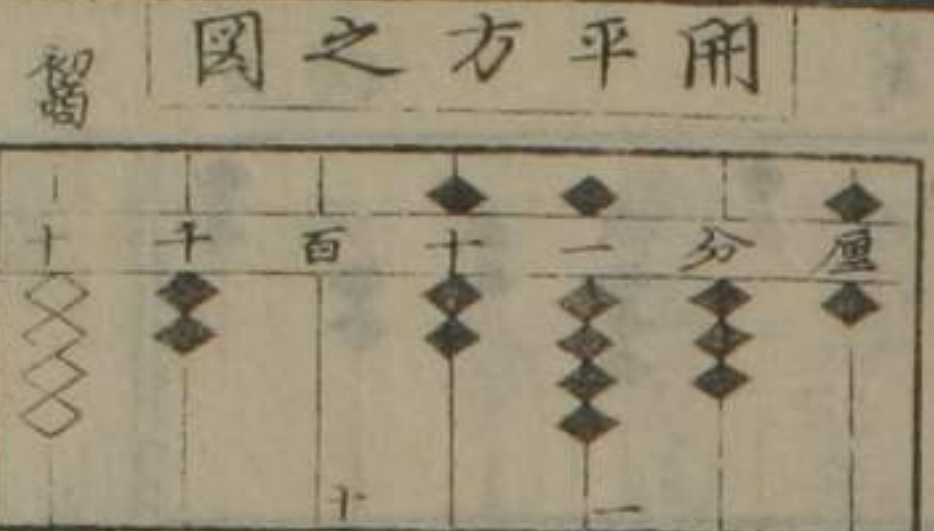 開平方之図
初商
十千百十一分厘
十一